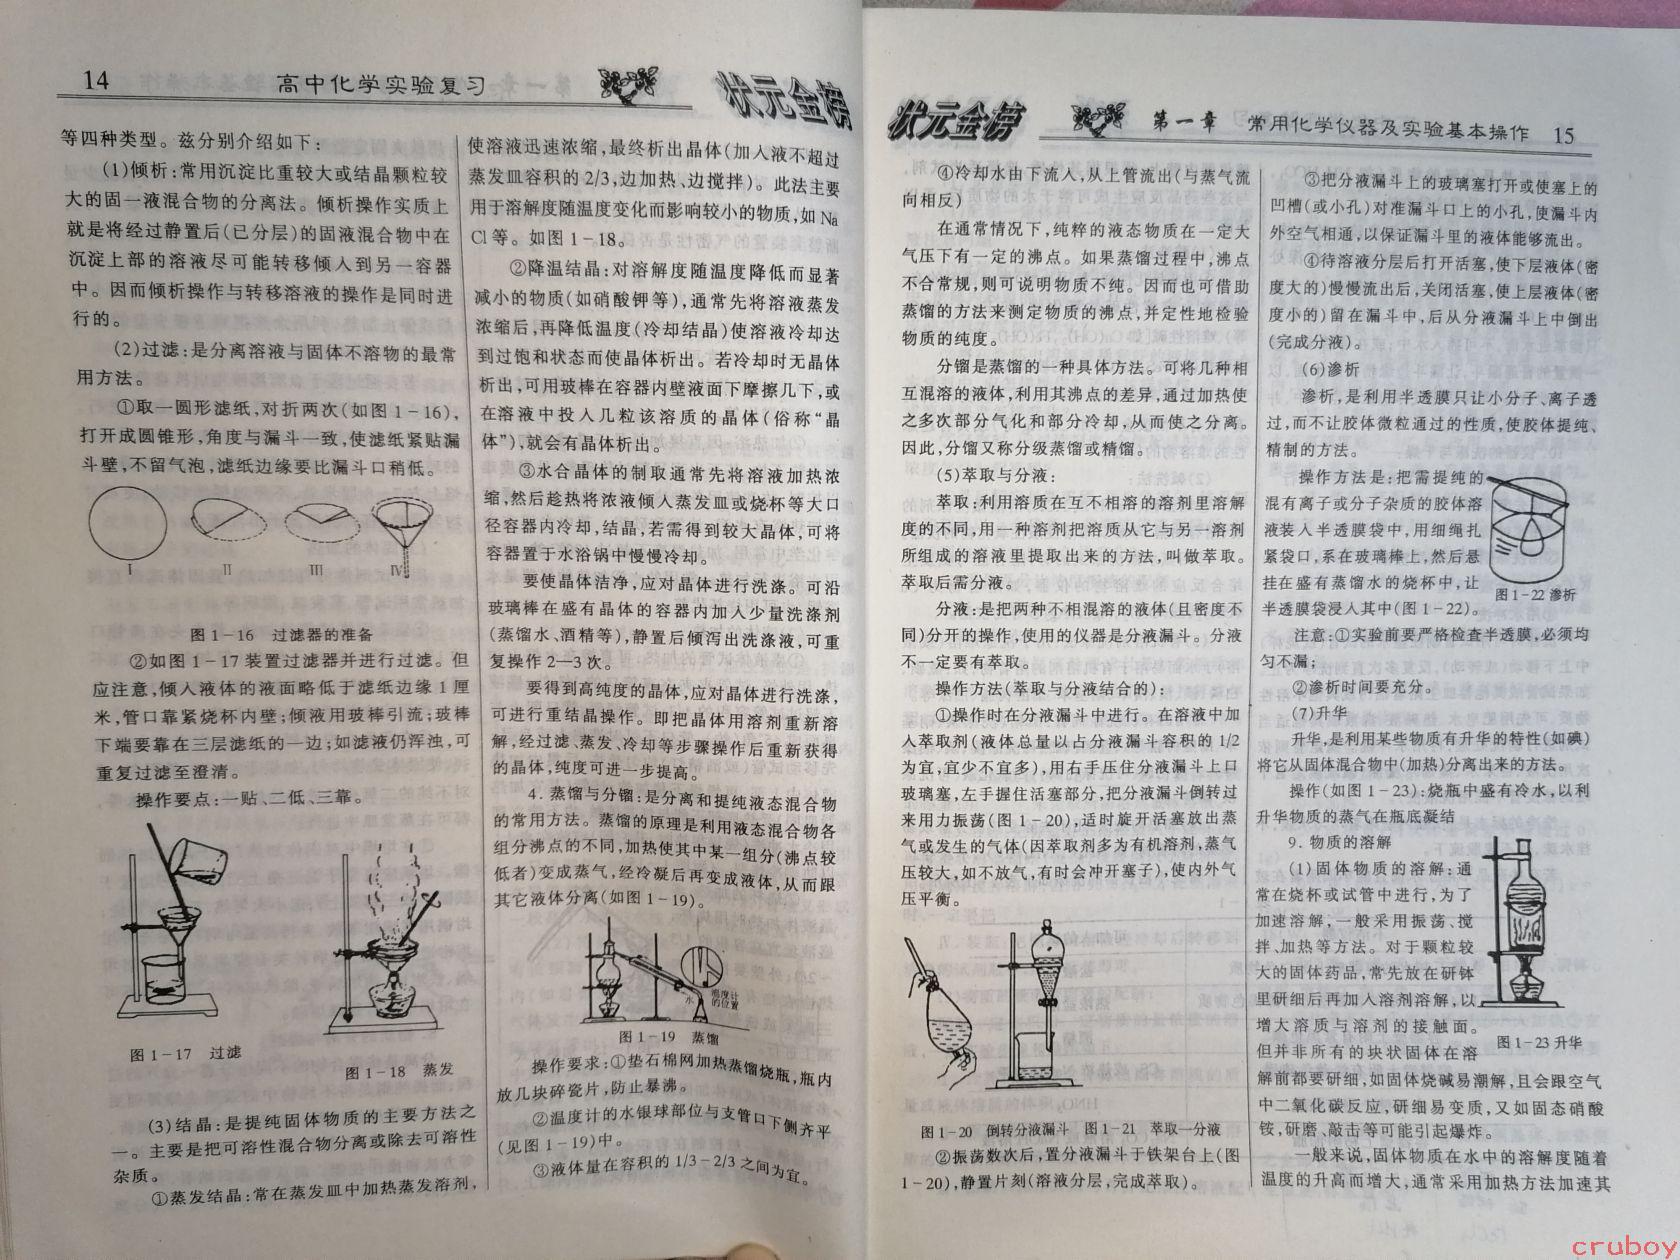 14
高中化学实验复习
状元金榜
等四种类型。兹分别介绍如下:
(1)倾析:常用沉淀比重较大或结晶颗粒较
大的固一液混合物的分离法。倾析操作实质上
就是将经过静置后(已分层)的固液混合物中在
沉淀上部的溶液尽可能转移倾人到另一容器
中。因而倾析操作与转移溶液的操作是同时进
行的。
(2)过滤:是分离溶液与固体不溶物的最常
用方法。
①取一圆形滤纸,对折两次(如图1-16),
打开成圆锥形,角度与漏斗一致,使滤纸紧贴漏
斗壁,不留气泡,滤纸边缘要比漏斗口稍低。
Ⅰ Ⅱ Ⅲ Ⅳ
图1-16 过滤器的准备
②如图1-17装置过滤器并进行过滤。但
应注意,倾人液体的液面略低于滤纸边缘1厘
米,管口靠紧烧杯内壁;倾液用玻棒引流;玻棒
下端要靠在三层滤纸的一边;如滤液仍浑浊,可
重复过滤至澄清。
操作要点:一贴、二低、三靠。
图1-17 过滤
图1-18 蒸发
(3)结晶:是提纯固体物质的主要方法之
一。主要是把可溶性混合物分离或除去可溶性
杂质。
①蒸发结晶:常在蒸发皿中加热蒸发溶剂,
使溶液迅速浓缩,最终析出晶体(加人液不超过
蒸发皿容积的2/3,边加热、边搅拌)。此法主要
用于溶解度随温度变化而影响较小的物质,如Na
Cl等。如图1-18。
②降温结晶:对溶解度随温度降低而显著
减小的物质(如硝酸钾等),通常先将溶液蒸发
浓缩后,再降低温度(冷却结晶)使溶液冷却达
到过饱和状态而使晶体析出。若冷却时无晶体
析出,可用玻棒在容器内壁液面下摩擦几下,或
在溶液中投人几粒该溶质的晶体(俗称“晶
体”),就会有晶体析出。
③水合晶体的制取通常先将溶液加热浓
缩,然后趁热将浓液倾人蒸发皿或烧杯等大口
径容器内冷却,结晶,若需得到较大晶体,可将
容器置于水浴锅中慢慢冷却。
要使晶体洁净,应对晶体进行洗涤。可沿
玻璃棒在盛有晶体的容器内加人少量洗涤剂
(蒸馏水、酒精等),静置后倾泻出洗涤液,可重
复操作2—3次。
要得到高纯度的晶体,应对晶体进行洗涤,
可进行重结晶操作。即把晶体用溶剂重新溶
解,经过滤、蒸发、冷却等步骤操作后重新获得
的晶体,纯度可进一步提高。
4. 蒸馏与分馏:是分离和提纯液态混合物
的常用方法。蒸馏的原理是利用液态混合物各
组分沸点的不同,加热使其中某一组分(沸点较
低者)变成蒸气,经冷凝后再变成液体,从而跟
其它液体分离(如图1-19)。
水
温度计
的位置
图1-19 蒸馏
操作要求:①垫石棉网加热蒸馏烧瓶,瓶内
放几块碎瓷片,防止暴沸。
②温度计的水银球部位与支管口下侧齐平
(见图1-19)中。
③液体量在容积的1/3-2/3之间为宜。
状元金榜
第一章 常用化学仪器及实验基本操作 15
④冷却水由下流人,从上管流出(与蒸气流
向相反)
在通常情况下,纯粹的液态物质在一定大
气压下有一定的沸点。如果蒸馏过程中,沸点
不合常规,则可说明物质不纯。因而也可借助
蒸馏的方法来测定物质的沸点,并定性地检验
物质的纯度。
分馏是蒸馏的一种具体方法。可将几种相
互混溶的液体,利用其沸点的差异,通过加热使
之多次部分气化和部分冷却,从而使之分离。
因此,分馏又称分级蒸馏或精馏。
(5)萃取与分液:
萃取:利用溶质在互不相溶的溶剂里溶解
度的不同,用一种溶剂把溶质从它与另一溶剂
所组成的溶液里提取出来的方法,叫做萃取。
萃取后需分液。
分液:是把两种不相混溶的液体(且密度不
同)分开的操作,使用的仪器是分液漏斗。分液
不一定要有萃取。
操作方法(萃取与分液结合的):
①操作时在分液漏斗中进行。在溶液中加
人萃取剂(液体总量以占分液漏斗容积的1/2
为宜,宜少不宜多),用右手压住分液漏斗上口
玻璃塞,左手握住活塞部分,把分液漏斗倒转过
来用力振荡(图1-20),适时旋开活塞放出蒸
气或发生的气体(因萃取剂多为有机溶剂,蒸气
压较大,如不放气,有时会冲开塞子),使内外气
压平衡。
图1-20 倒转分液漏斗 图1-21 萃取一分液
②振荡数次后,置分液漏斗于铁架台上(图
1-20),静置片刻(溶液分层,完成萃取)。
③把分液漏斗上的玻璃塞打开或使塞上的
凹槽(或小孔)对准漏斗口上的小孔,使漏斗内
外空气相通,以保证漏斗里的液体能够流出。
④待溶液分层后打开活塞,使下层液体(密
度大的)慢慢流出后,关闭活塞,使上层液体(密
度小的)留在漏斗中,后从分液漏斗上中倒出
(完成分液)。
(6)渗析
渗析,是利用半透膜只让小分子、离子透
过,而不让胶体微粒通过的性质,使胶体提纯、
精制的方法。
操作方法是:把需提纯的
混有离子或分子杂质的胶体溶
液装人半透膜袋中,用细绳扎
紧袋口,系在玻璃棒上,然后悬
挂在盛有蒸馏水的烧杯中,让
半透膜袋浸人其中(图1-22)。
图1-22 渗析
注意:①实验前要严格检查半透膜,必须均
匀不漏;
②渗析时间要充分。
(7)升华
升华,是利用某些物质有升华的特性(如碘)
将它从固体混合物中(加热)分离出来的方法。
操作(如图1-23):烧瓶中盛有冷水,以利
升华物质的蒸气在瓶底凝结
9. 物质的溶解
(1)固体物质的溶解:通
常在烧杯或试管中进行,为了
加速溶解,一般采用振荡、搅
拌、加热等方法。对于颗粒较
大的固体药品,常先放在研钵
里研细后再加人溶剂溶解,以
增大溶质与溶剂的接触面。
但并非所有的块状固体在溶
图1-23 升华
解前都要研细,如固体烧碱易潮解,且会跟空气
中二氧化碳反应,研细易变质,又如固态硝酸
铵,研磨、敲击等可能引起爆炸。
一般来说,固体物质在水中的溶解度随着
温度的升高而增大,通常采用加热方法加速其
cruboy